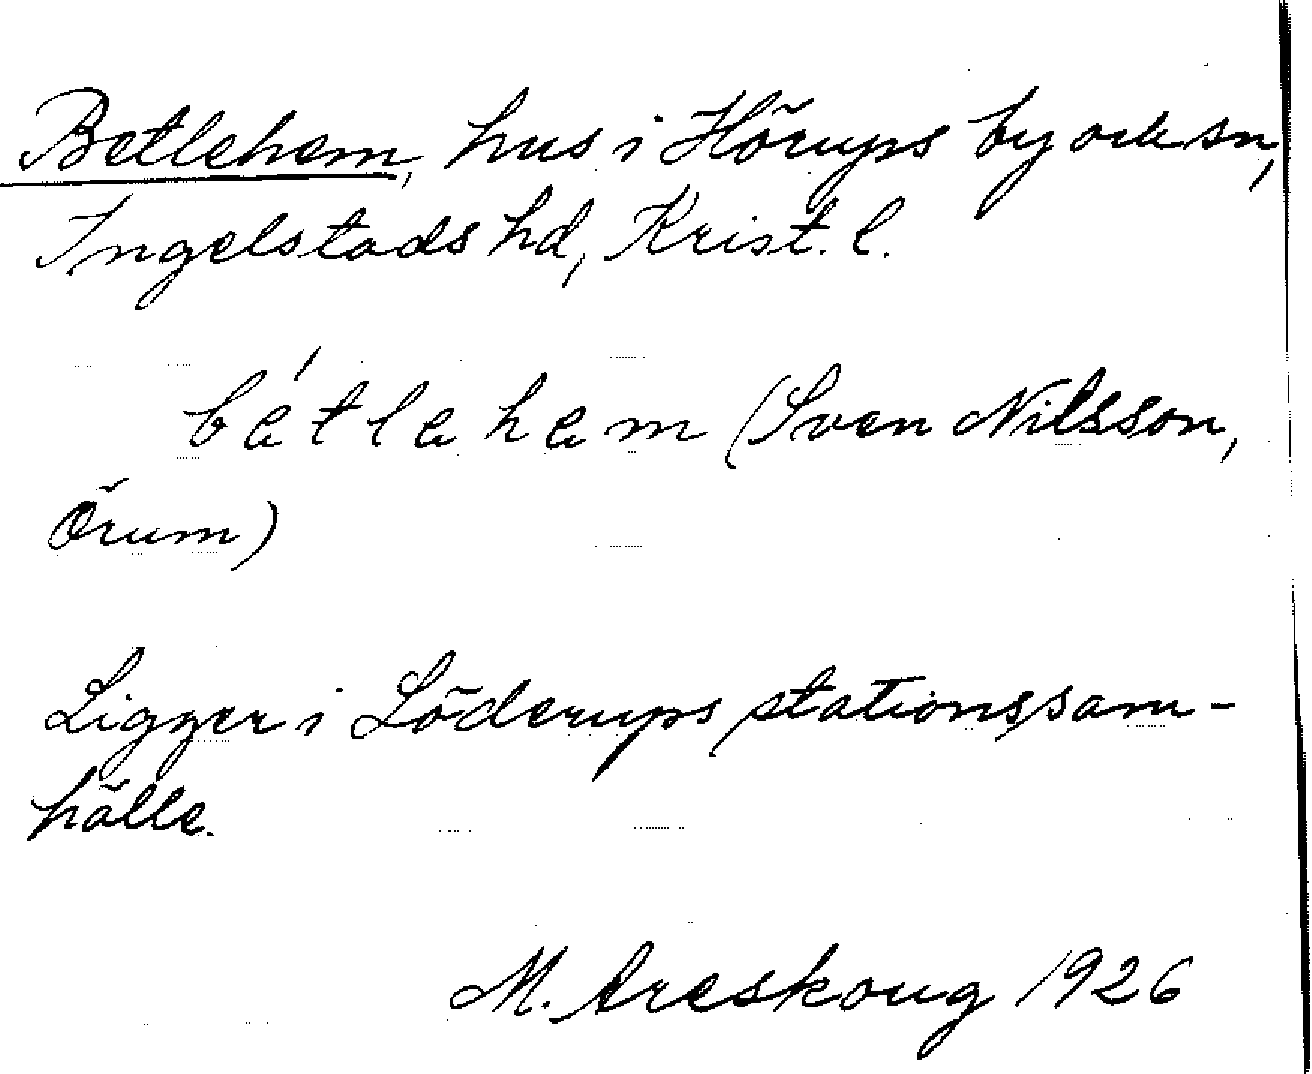 Betlehem, hus i Hörups by ock sn,
Ingelstads hd, Krist. l.
bétlehem (Sven Nilsson,
Örum)
Ligger i Löderups stationssam-
hälle.
M. Areskoug 1926